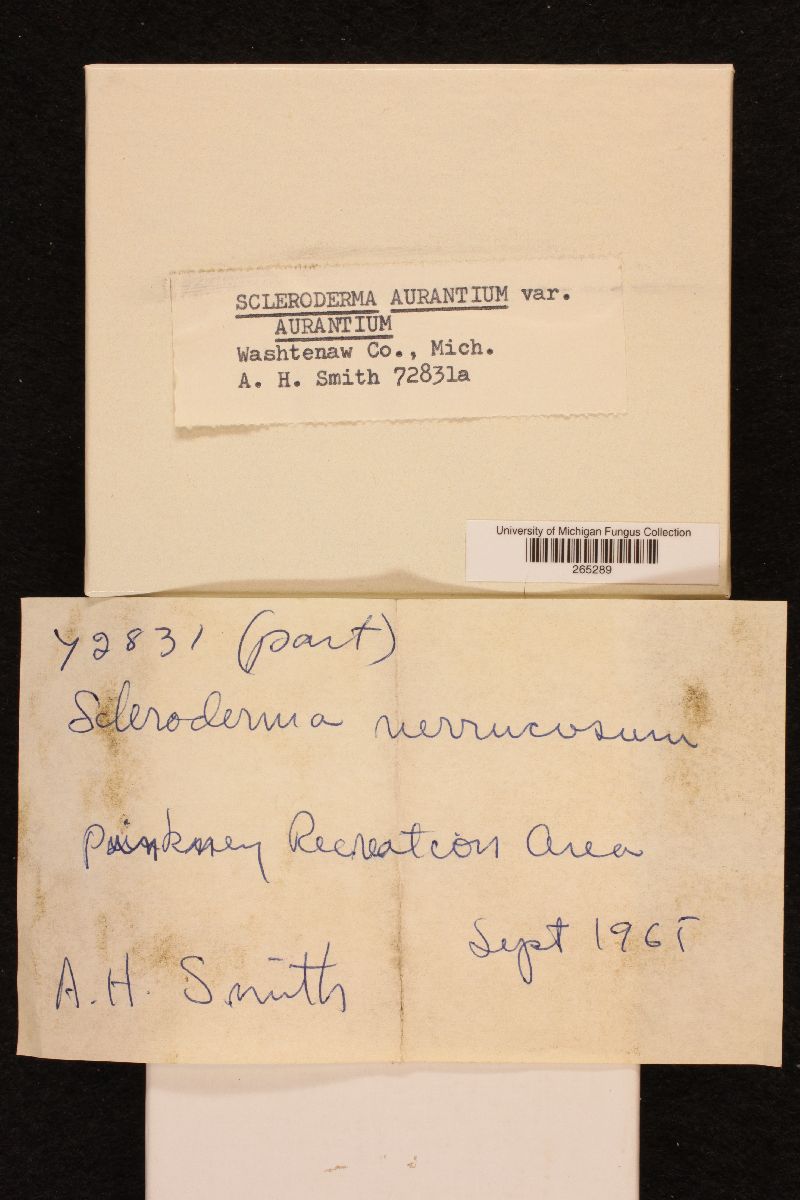 SCLERODERMA AURANTIUM var.
AURANTIUM
Washtenaw Co., Mich.
A. H. Smith 72831a
University of Michigan Fungus Collection
265289
72831 (part)
Scleroderma verrucosum
Pinkney Recreation Area
Sept 1965
A. H. Smith